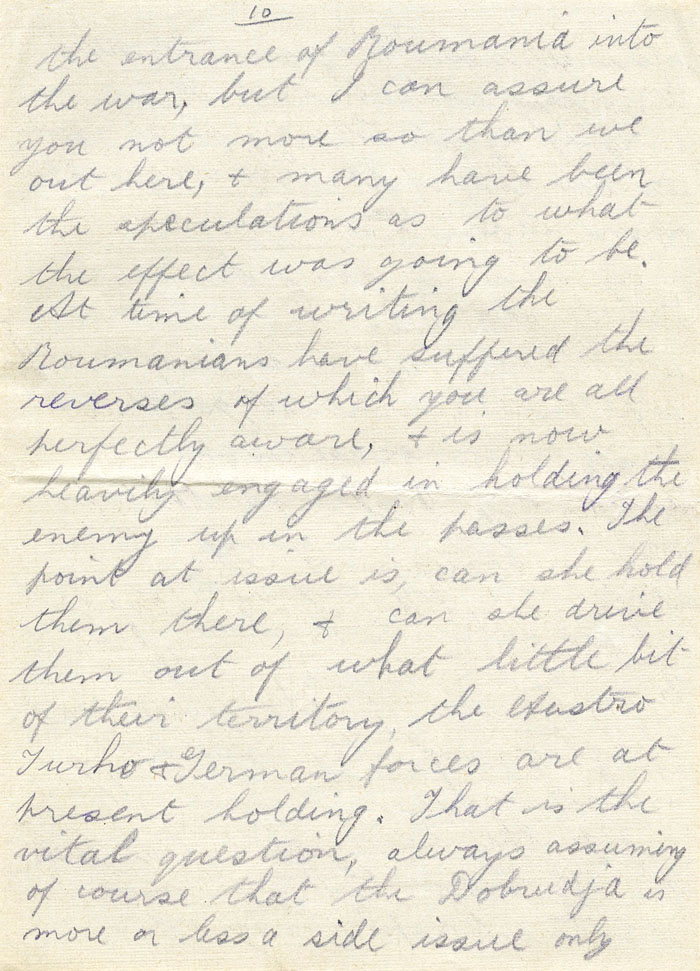 10
the entrance of Roumania into
the war, but I can assure
you not more so than we
out here, & many have been
the speculations as to what
the effect was going to be.
At time of writing the
Roumanians have suffered the
reverses of which you are all
perfectly aware, & is now
heavily engaged in holding the
enemy up in the passes. The
point at issue is, can she hold
them there, & can she drive
them out of what little bit
of their territory, the Austro
Turko & German forces are at
present holding. That is the
vital question, always assuming
of course that the Dobrudja is
more or less a side issue only